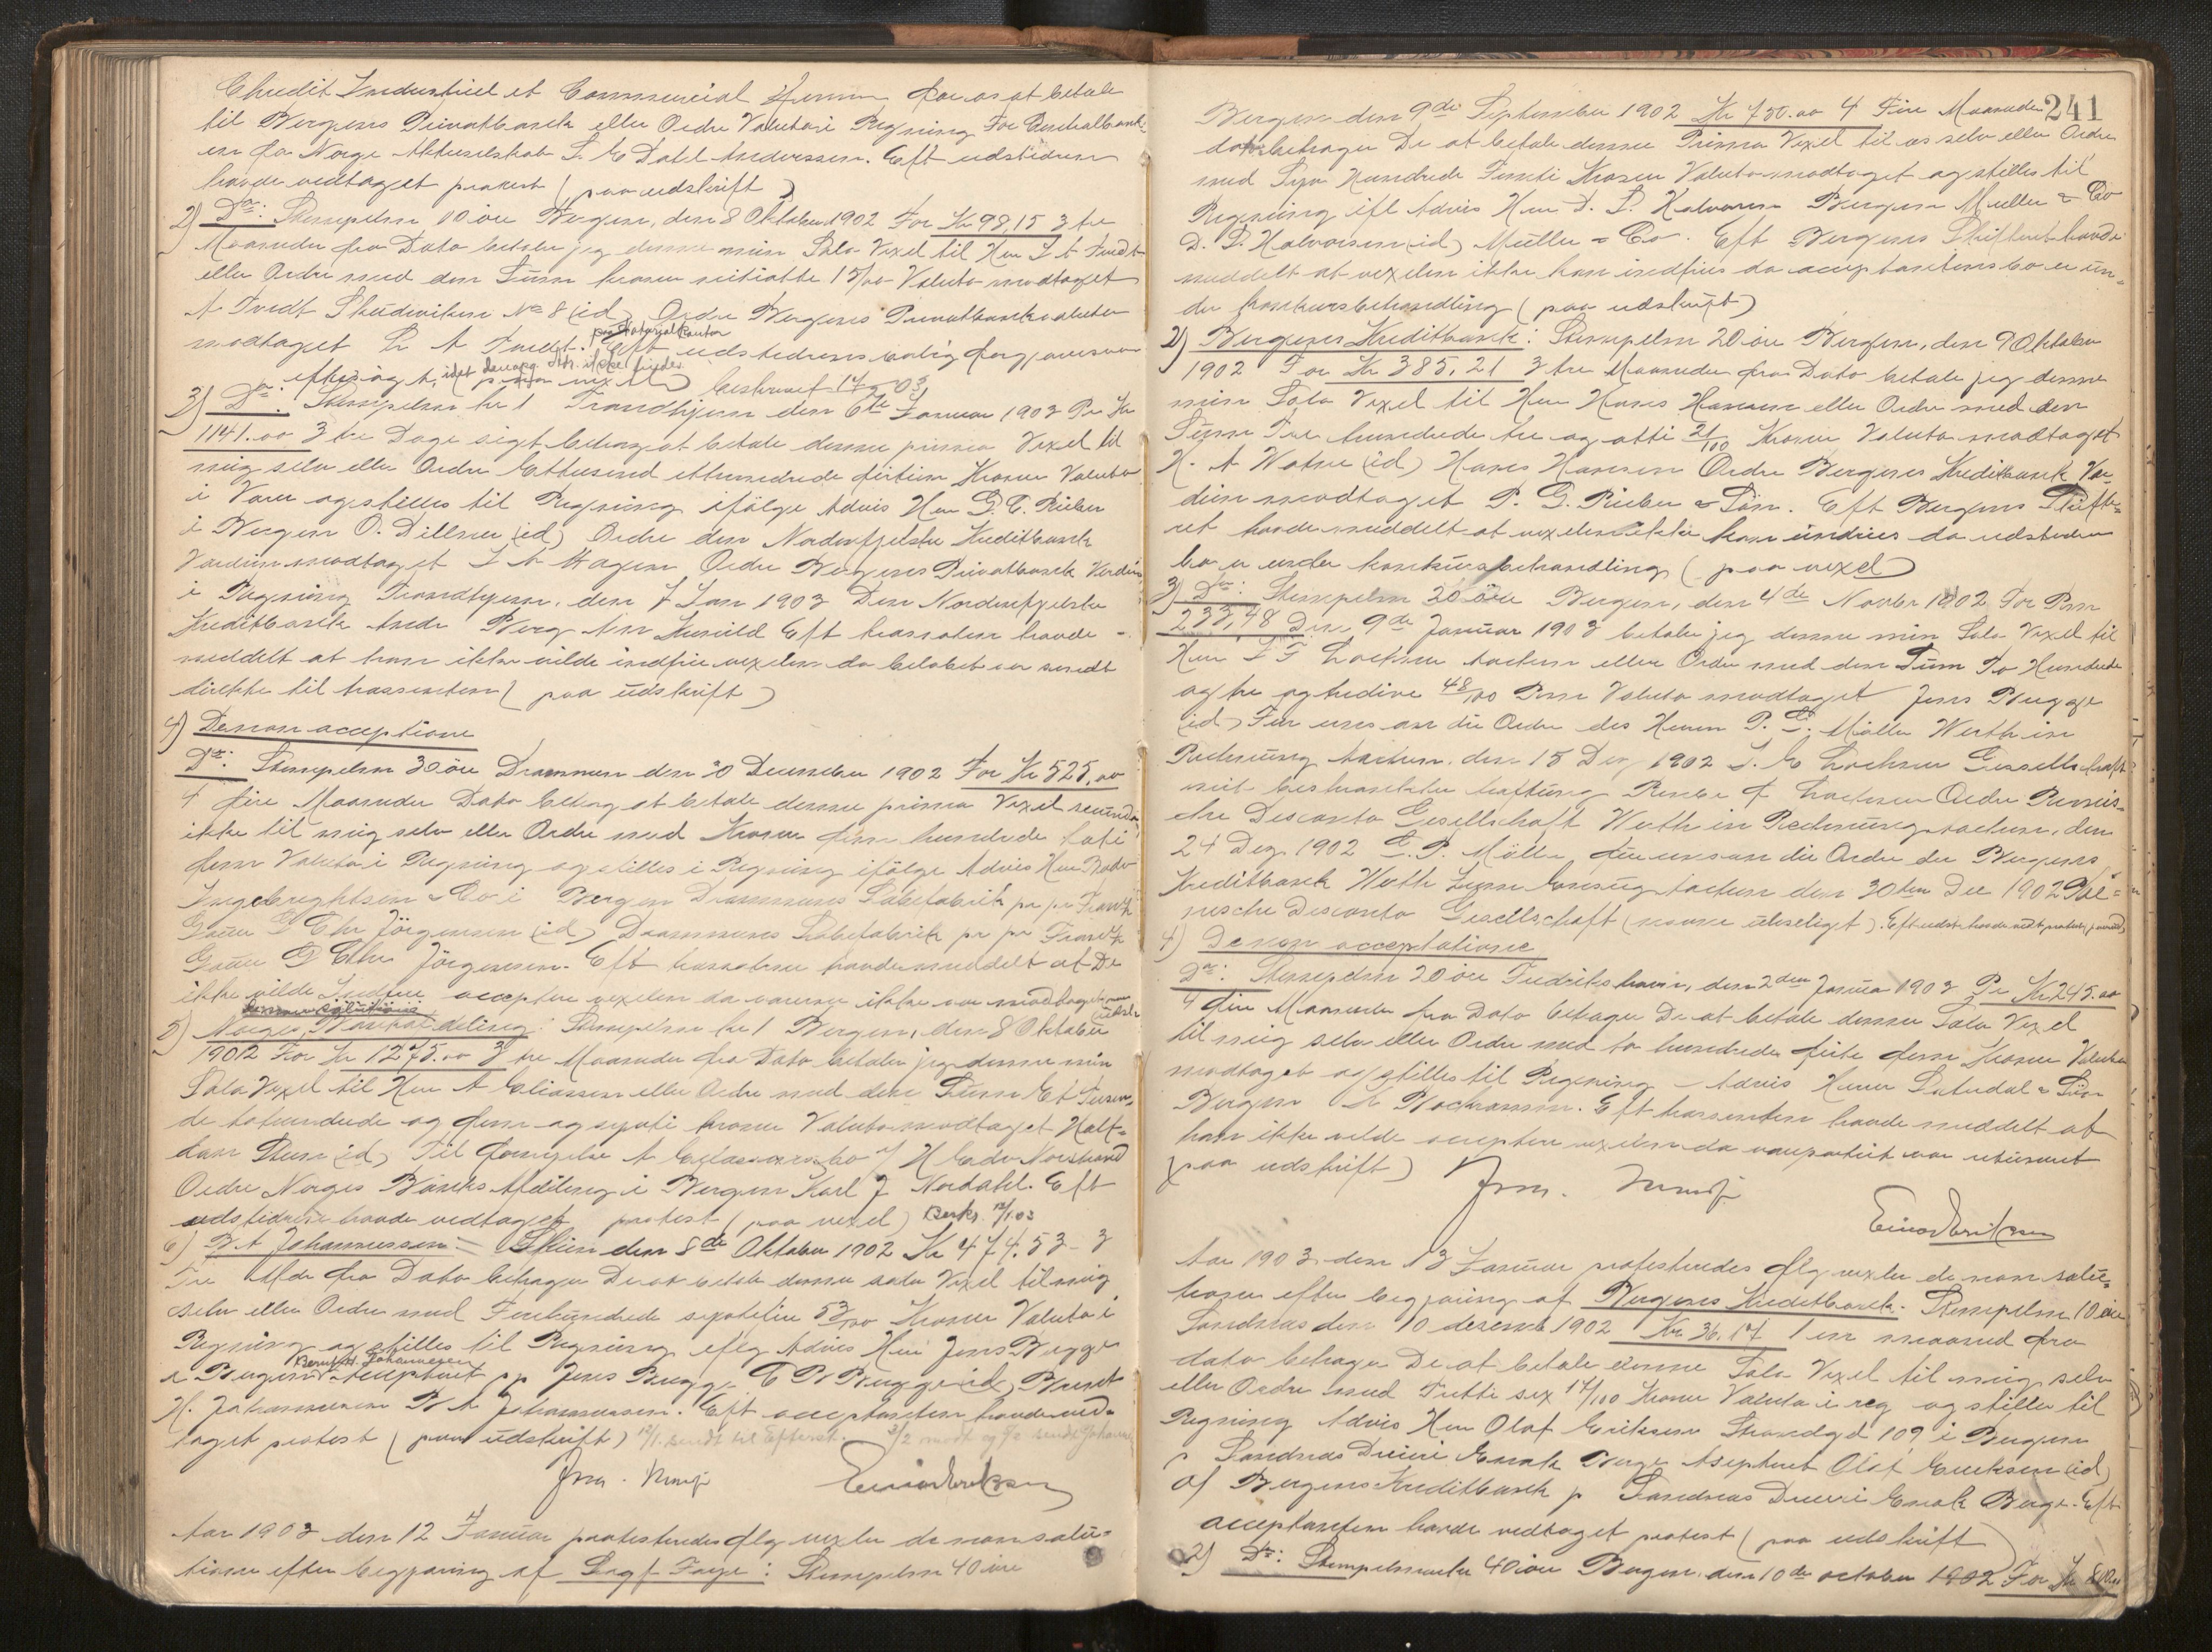 Chredit Industriel et Commercial for os at betale
til Bergens Privatbank eller Ordre Valuta i Regning For Centralbank-
en for Norge Aktieselskab S. E Dahl Andersen. Eft udstederen
havde vedtaget protest (paa udskrift)
2) Do: Stempelm 10 öre Bergen, den 8 Oktober 1902 For Kr 98,15 3 tre
Maaneder fra Dato betaler jeg denne min Sola Vexel til Herr A Tvedt
eller Ordre med den Sum kroner nitiotte 15/100 Valuta modtaget
A Tvedt Skudeviken No 8 (id) Ordre Bergens Privatbank valuta
paa Notarialkontor
modtaget A Tvedt. Eft udstederens bolig forgjæves var
eftersögt, (paa vexel) beskrevet 17/9 03
3) Do: Stempelm kr 1 Trondhjem den 6te Januar 1903 Pr Kr
1141.00 3 tre Dage sigt behag at betale denne prima Vexel til
mig selv eller Ordre Ettusend ethundrede förtien Kroner Valuta
i Varer og stilles til Regning ifölge Advis Herr G. C. Rieber
i Bergen O. Dillner (id) Ordre den Nordenfjelske Kreditbank
Værdien modtaget Hagen Ordre Bergens Privatbank Værdien
i Regning Trondhjem, den 7 Jan 1903 Den Nordenfjelske
Kreditbank Andr Berg Eft trassaten havde
meddelt at han ikke vilde indfrie vexelen da belöbet var sendt
direkte til trassenten (paa udskrift)
4) De non acceptione
Do: Stempelm 30 öre Drammen den 30 December 1902 For Kr 525,00
4 fire Maaneder Dato behag at betale denne prima Vexel secunda
ikke til mig selv eller Ordre med Kroner fem hundrede toti
fem Valuta i Regning og stilles i Regning ifölge Advis Herr Brödr
Ingebrightsen & Co i Bergen Drammens Sæbefabrik pr pr Frantz
Gauer D Chr Jörgensen (id) Drammens Sæbefabrik pr pr Frantz
Gauer D Chr Jörgensen. Eft trassatene havde meddelt at De
ikke vilde indfrie acceptere vexelen da varerne ikke var modtaget (paa udskr
de non solutione
5) Norges Bankafdeling: Stempelm kr 1 Bergen, den 8 Oktober
1902 For Kr 1275.00 3 tre Maaneder fra Dato betaler jeg denne min
Sola Vexel til Herr A Eliassen eller Ordre med den Sum Et Tusen-
de tohundrede og fem og sytti kroner Valuta modtaget Half-
dan Steen (id) Til fornyelse A Eliassens bo
Ordre Norges Banks Afdeling i Bergen Karl J Nordahl. Eft
udstederen havde vedtaget protest (paa vexel) Beskr. 12/1 03
6) B A Johannessen: Skien den 8de Oktober 1902 Kr 474.53 - 3
Tre Mdr fra Dato behager De at betale denne sola Vexel til mig
selv eller Ordre med Firehundrede syvtifire 53/100 Kroner Valuta i
Regning og stilles til Regning iflg Advis Herr Jens Bugge
Bernt H. Johannesen
i Bergen Accepteret pp Jens Bugge C Bugge (id) Bernt
H. Johannesen B A Johannessen. Eft acceptanten havde ved-
taget protest (paa udskrift) 12/1 sendt til Efterret.
Einar Eriksen
Aar 1903 den 12 Januar protesteredes flg vexler de non solu-
tione efter begjæring af Sagf. Faye: Stempelm 40 öre
241
Bergen den 9de September 1902 Kr 750.00 4 Fire Maaneder
dato behager De at betale denne Prima Vexel til os selv eller Ordre
med Syv Hundrede Femti Kroner Valuta modtaget og stilles til
Regning ifl Advis Herr D. S. Halvorsen Bergen Müller & Co
D. S. Halvorsen (id) Müller & Co. Eft Bergens Skifteret havde
meddelt at vexelen ikke kan indfries da acceptantens bo er un-
der konkursbehandling (paa udskrift)
2) Bergens Kreditbank: Stempelm 20 öre Bergen, den 9 Oktober
1902 For Kr 385,21 3 tre Maaneder fra Dato betaler jeg denne
min Sola Vexel til Herr Hans Hansen eller Ordre med den
Sum Tre hundrede fem og otti 21/100 Kroner Valuta modtaget
H. A Watne (id) Hans Hansen Ordre Bergens Kreditbank Vær-
dien modtaget P. G. Rieber & Sön. Eft Bergens Skifte-
ret havde meddelt at vexelen ikke kan indfries da udstederens
bo er under konkursbehandling (paa vexel)
3) Do: Stempelm 20 öre Bergen, den 4de Novbr 1902 For Rm
233,48 Den 9de Januar 1903 betaler jeg denne min Sola Vexel til
Herr Lochner Aachen eller Ordre med den Sum To Hundrede
og tre og tredive 48/100 Rm Valuta modtaget Jens Bugge
(id) Für uns an die Ordre des Herrn P. C. Möller Werth in
Rechnung Aachen, den 15 Dez 1902 Lochner Gesellschaft
mit beschränkter Haftung Lochner Ordre Rheinis-
che Disconto Gesellschaft Werth in Rechnung Aachen, den
24 Dez 1902 C. P. Möller für uns an die Ordre der Bergens
Kreditbank Werth zum Einzug Aachen den 30ten Dec 1902 Rhei-
nische Disconto Gesellschaft (navne uleseligt). Eft udst havde vedt. protest, paa vexel)
4) De non acceptatione
Do: Stempelm 20 öre Fredrikshavn, den 2den Januar 1903 Pr Kr 245.00
4 fire Maaneder fra Dato behager De at betale denne Sola Vexel
til mig selv eller Ordre med to hundrede firti fem kroner Valuta
modtaget og stilles til Regning Advis Herrer Sætredal & Sön
Bergen. Eft trassenten havde meddelt at
han ikke vilde acceptere vexelen da vareparti­et var returneret
(paa udskrift)
Einar Eriksen
Aar 1903 den 13 Januar protesteredes flg vexler de non solu-
tione efter begjæring af Bergens Kreditbank. Stempelm 10 öre
Sandnæs den 10 desember 1902 Kr. 36.17 1 en maaned fra
dato behager De at betale denne Sola Vexel til mig selv
eller Ordre med Tretti sex 17/100 Kroner Valuta i reg og stilles til
Regning Advis Herr Olaf Eriksen Strandgd 109 i Bergen
p Sandnæs Enok Berge Aksepteret Olaf Eriksen (id)
af Bergens Kreditbank p Sandnæs Enok Berge. Eft
acceptanten havde vedtaget protest (paa udskrift)
2) Do: Stempelmerke 40 öre Bergen den 10de october 1902 For Kr